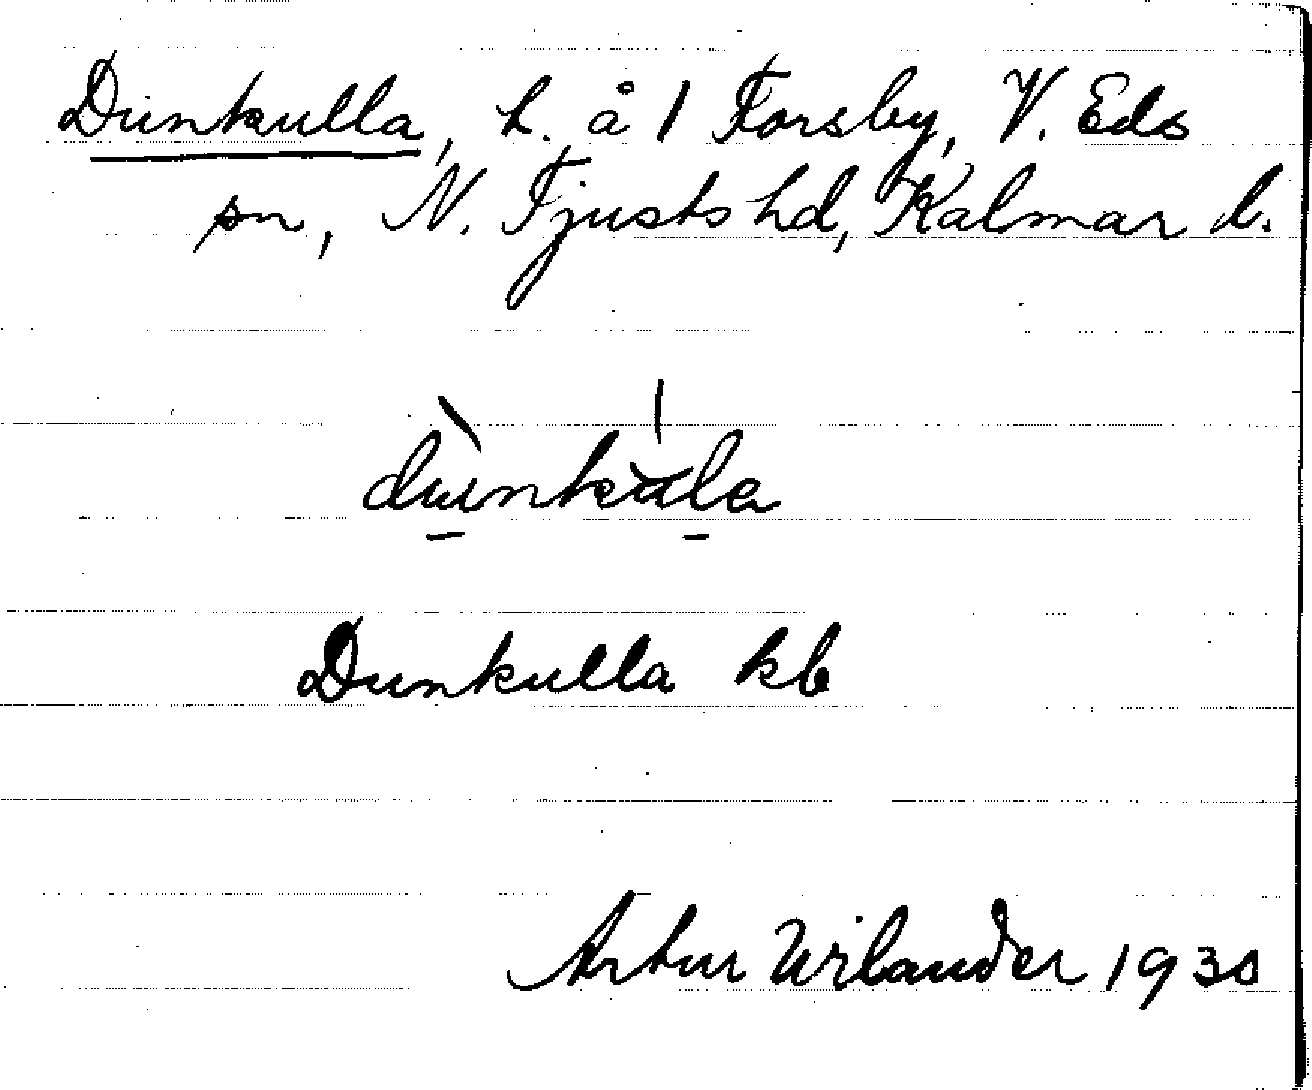 Dunkulla, h. å 1 Forsby, V. Eds
sn, N. Tjusts hd, Kalmar l.
dunkula
Dunkulla kb
Artur Wilander 1930